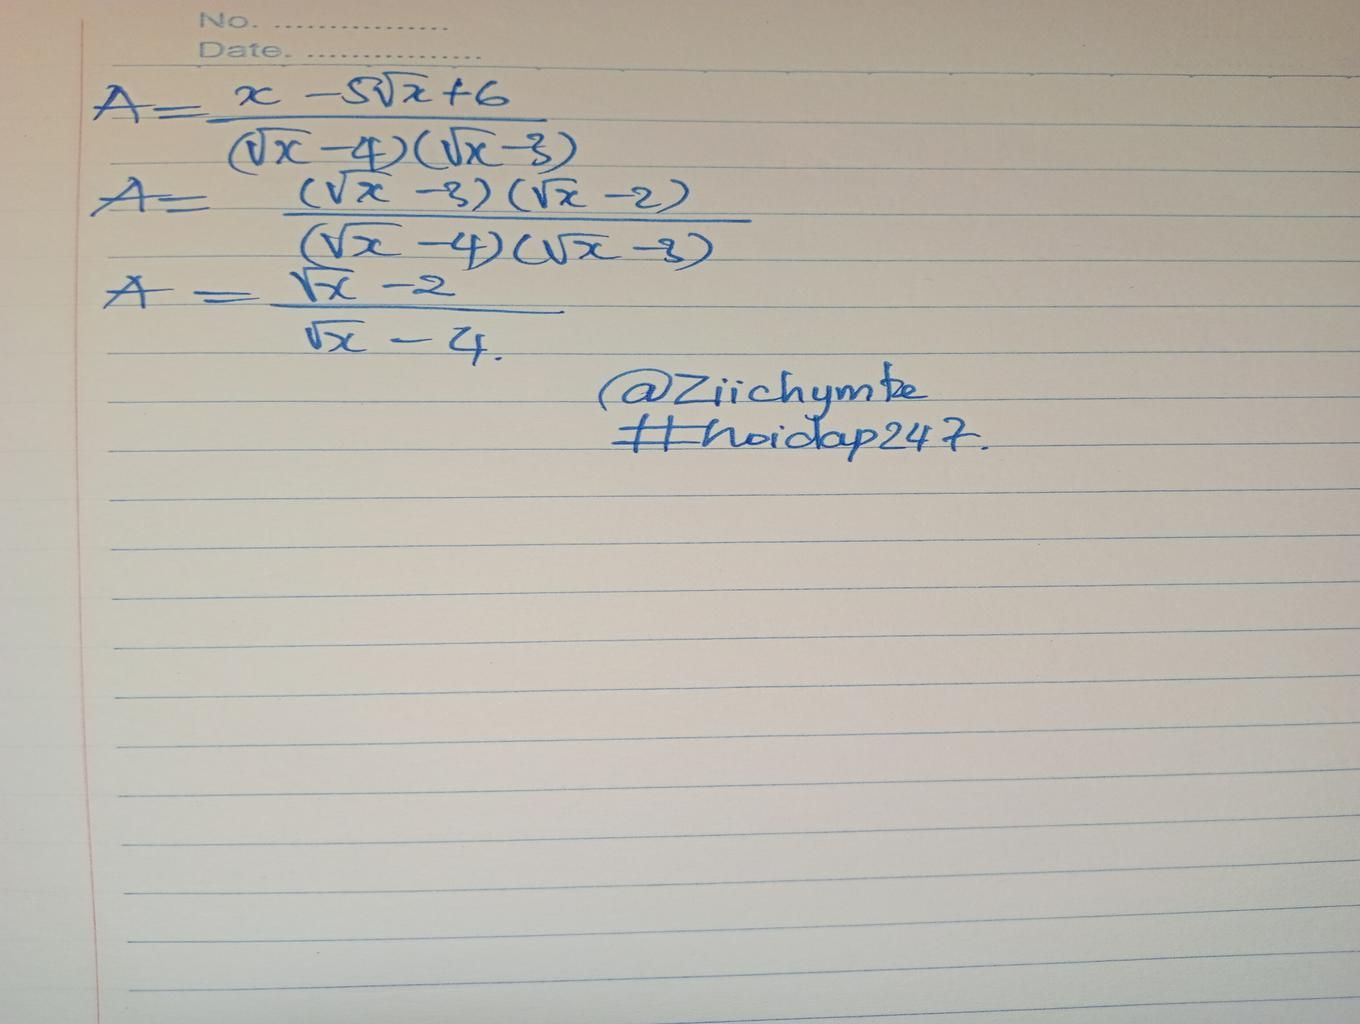 No. ................
Date. ................
A = \frac{x - 5\sqrt{x} + 6}{(\sqrt{x} - 4)(\sqrt{x} - 3)}
A = \frac{(\sqrt{x} - 3)(\sqrt{x} - 2)}{(\sqrt{x} - 4)(\sqrt{x} - 3)}
A = \frac{\sqrt{x} - 2}{\sqrt{x} - 4}.
@Ziichymte
#hoidap247.